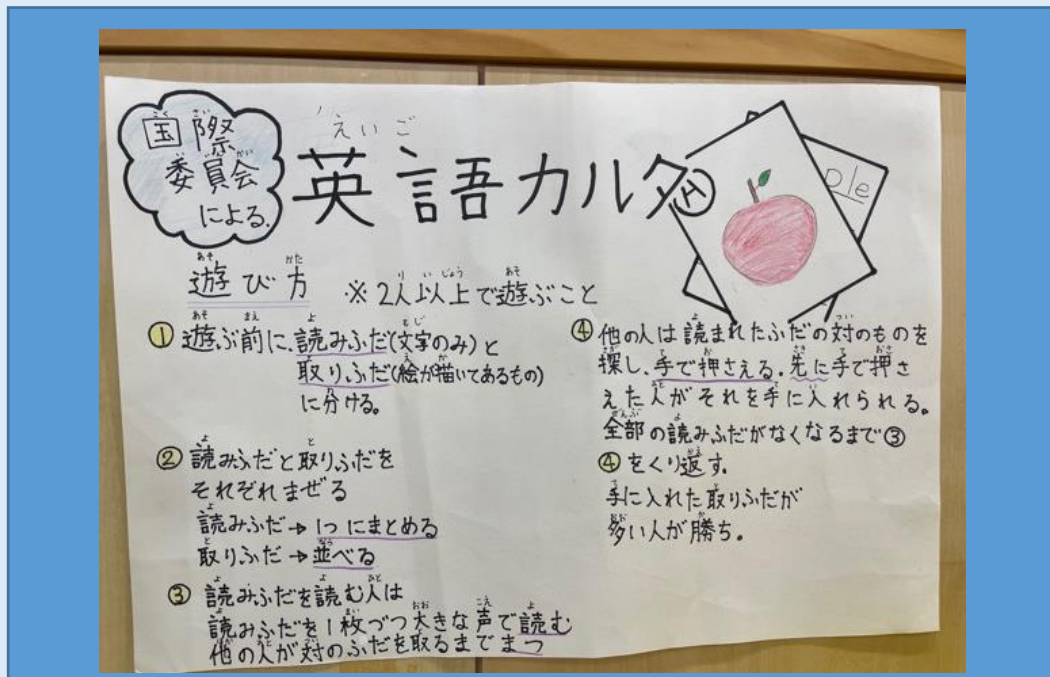 国際
委員会
による.
えいご
英語カルタ
H
ple
遊び方 ※2人以上で遊ぶこと
①遊ぶ前に、読みふだ(文字のみ)と
取りふだ(絵が描いてあるもの)
に分ける。
②読みふだと取りふだを
それぞれまぜる
読みふだ→1つにまとめる
取りふだ→並べる
③読みふだを読む人は
読みふだを1枚づつ大きな声で読む
他の人が対のふだを取るまでまつ
④他の人は読まれたふだの対のものを
探し、手で押さえる.先に手で押さ
えた人がそれを手に入れられる。
全部の読みふだがなくなるまで③
④をくり返す.
手に入れた取りふだが
多い人が勝ち。